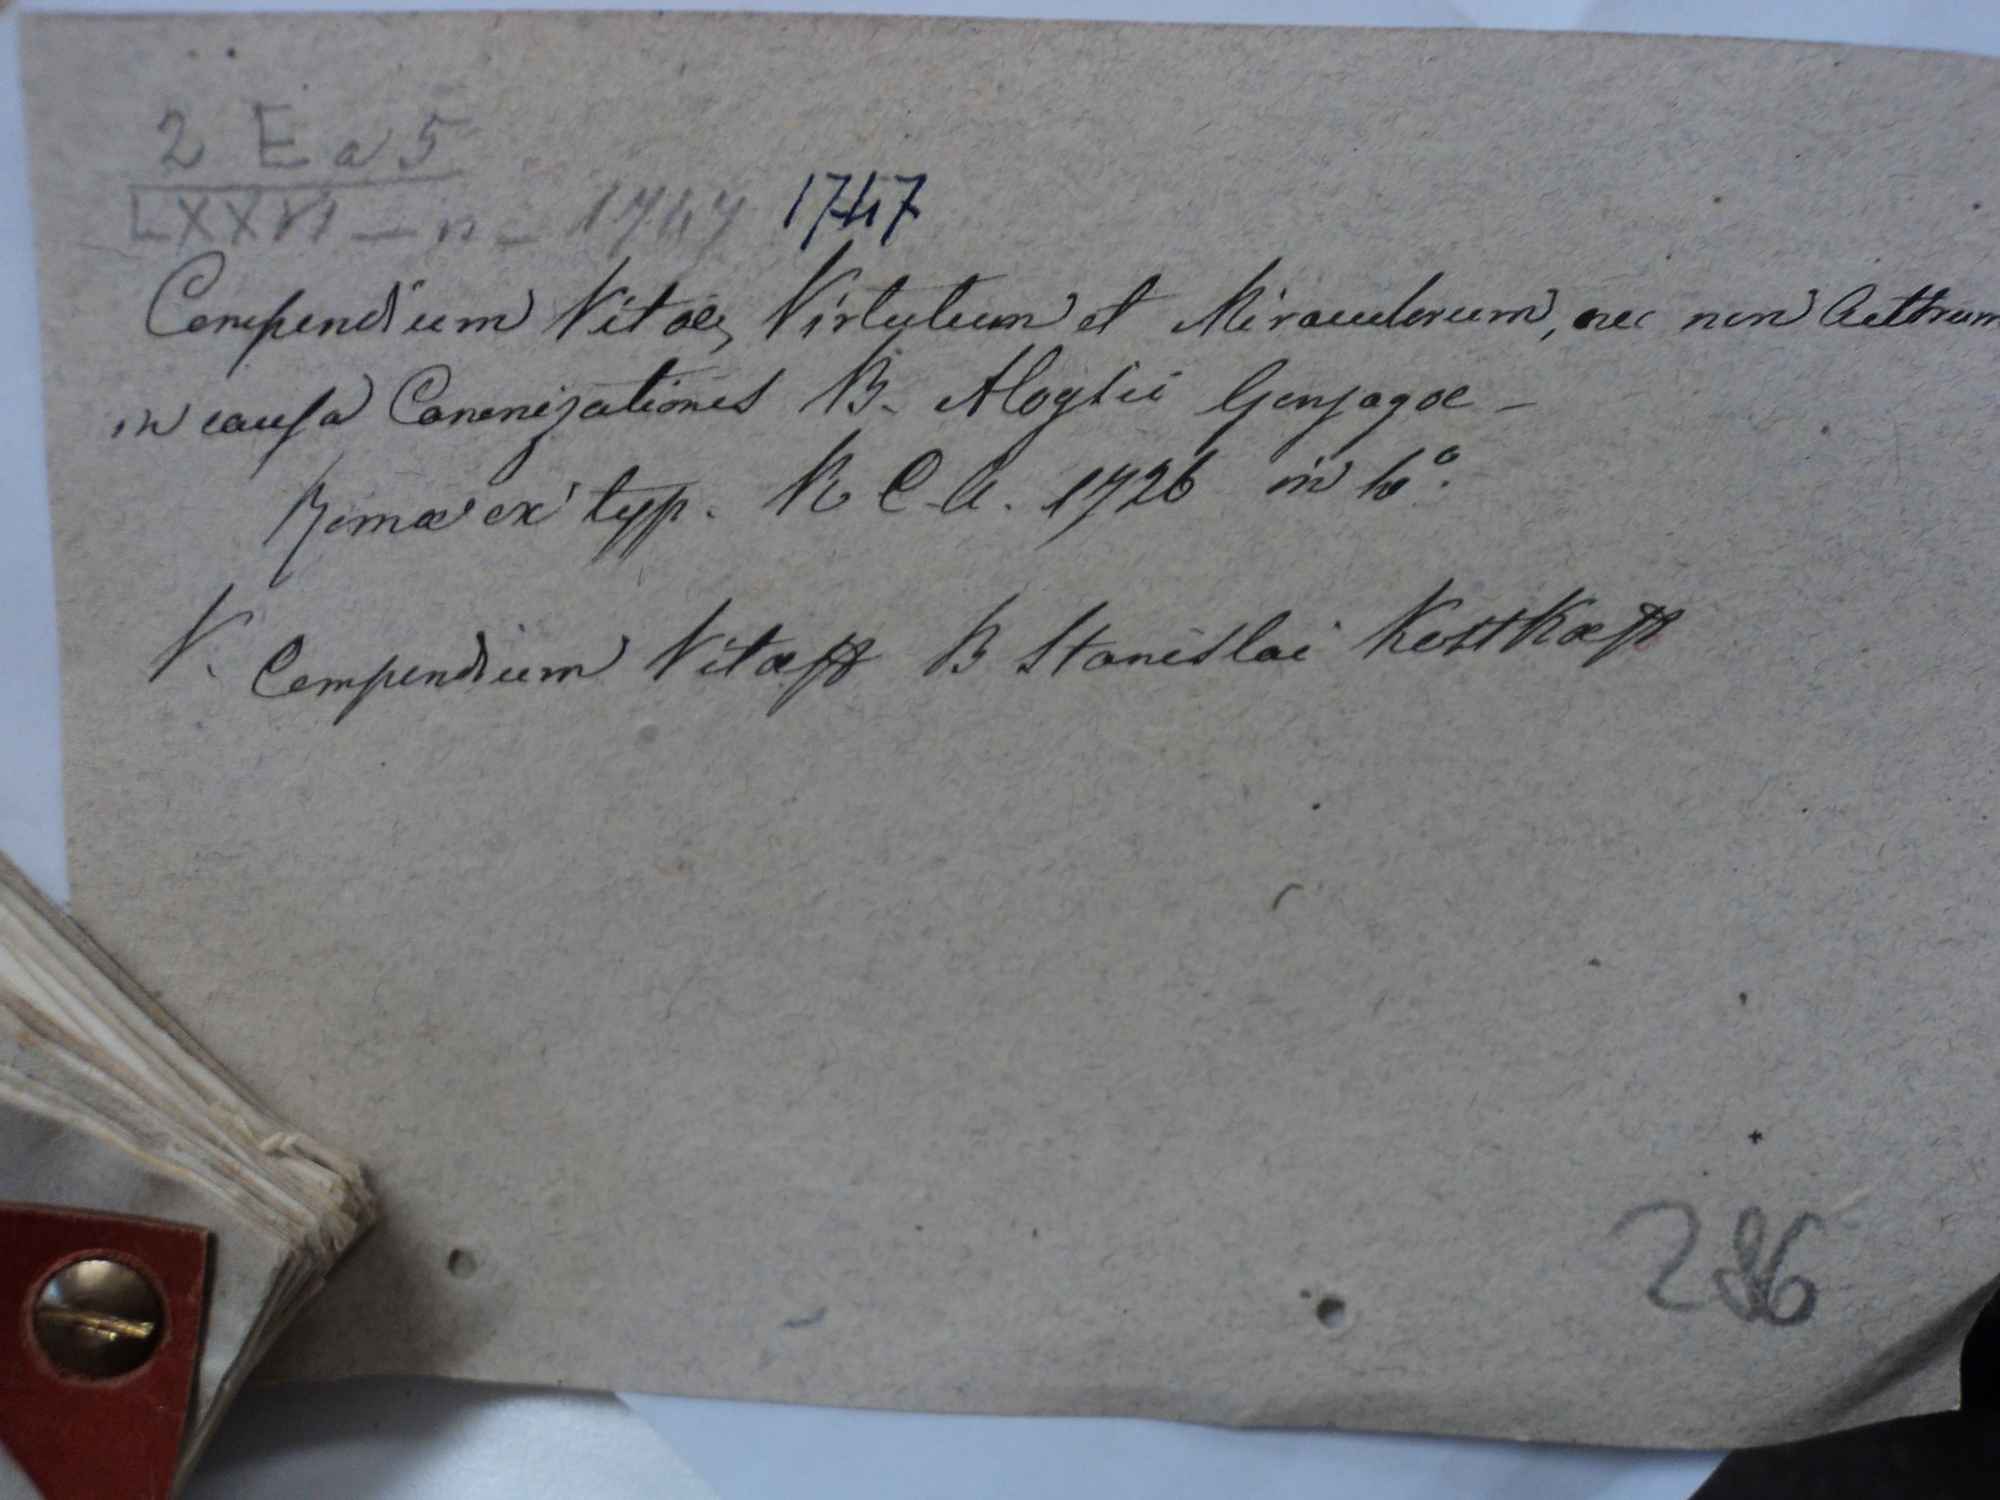 2 E a 5
LXXVI - n - 1747 1747
Compendium Vitae, Virtutum et Miraculorum, nec non Acttrum
in causa Canonizationis B. Aloysii Gonzagae -
Romae ex typ. R C. A. 1726 in 4°.
V. Compendium Vitae B Stanislai Kostkae
286